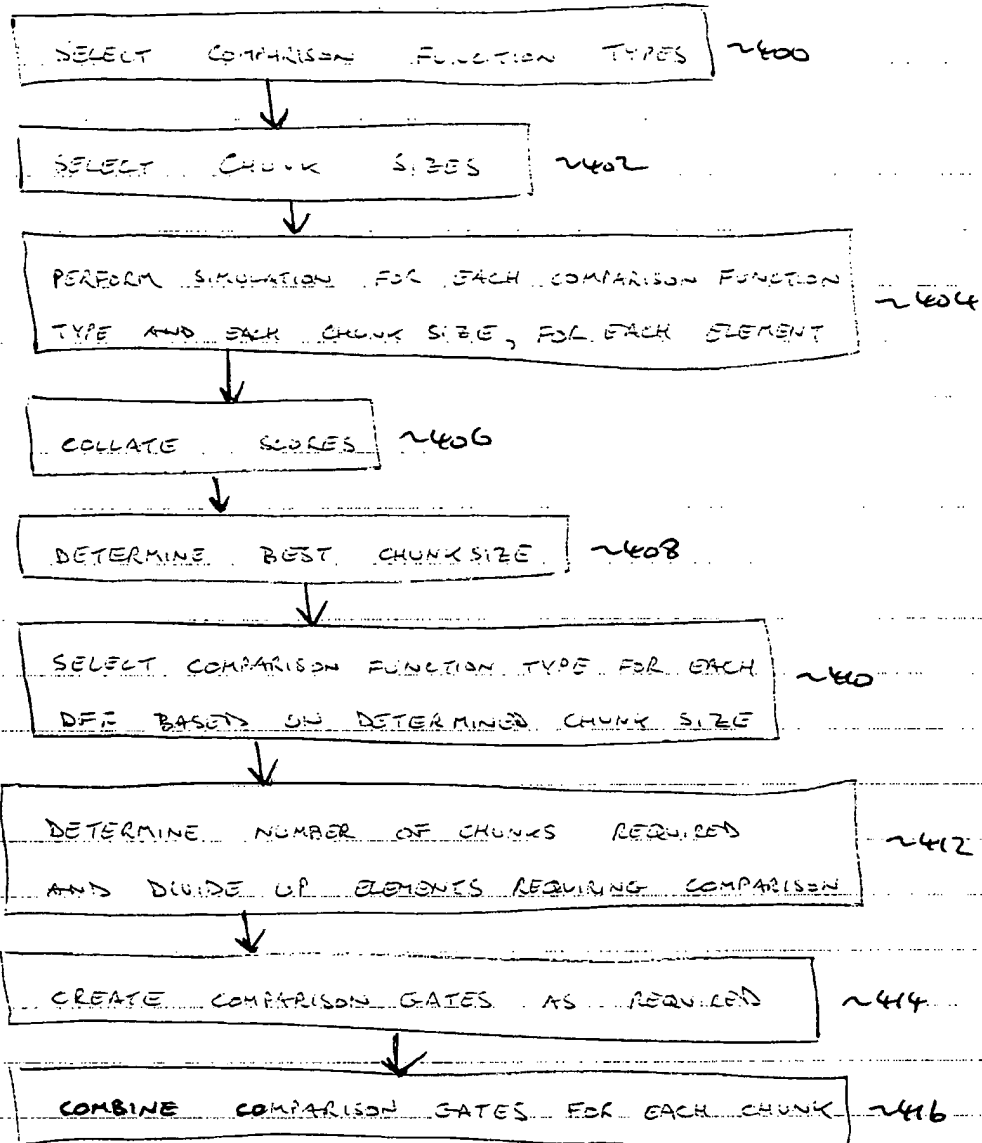 SELECT COMPARISON FUNCTION TYPES ~400
SELECT CHUNK SIZES ~402
PERFORM SIMULATION FOR EACH COMPARISON FUNCTION
TYPE AND EACH CHUNK SIZE, FOR EACH ELEMENT ~404
COLLATE SCORES ~406
DETERMINE BEST CHUNKSIZE ~408
SELECT COMPARISON FUNCTION TYPE FOR EACH ~410
DFF BASED ON DETERMINED CHUNK SIZE
DETERMINE NUMBER OF CHUNKS REQUIRED ~412
AND DIVIDE UP ELEMENTS REQUIRING COMPARISON
CREATE COMPARISON GATES AS REQUIRED ~414
COMBINE COMPARISON GATES FOR EACH CHUNK ~416